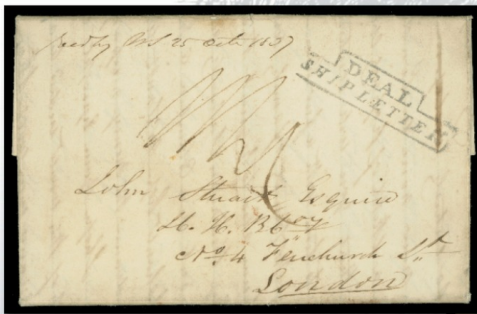 25 Oct 1837
DEAL
SHIP LETTER
John Stuart Esquire
No. 4 Fenchurch St.
London